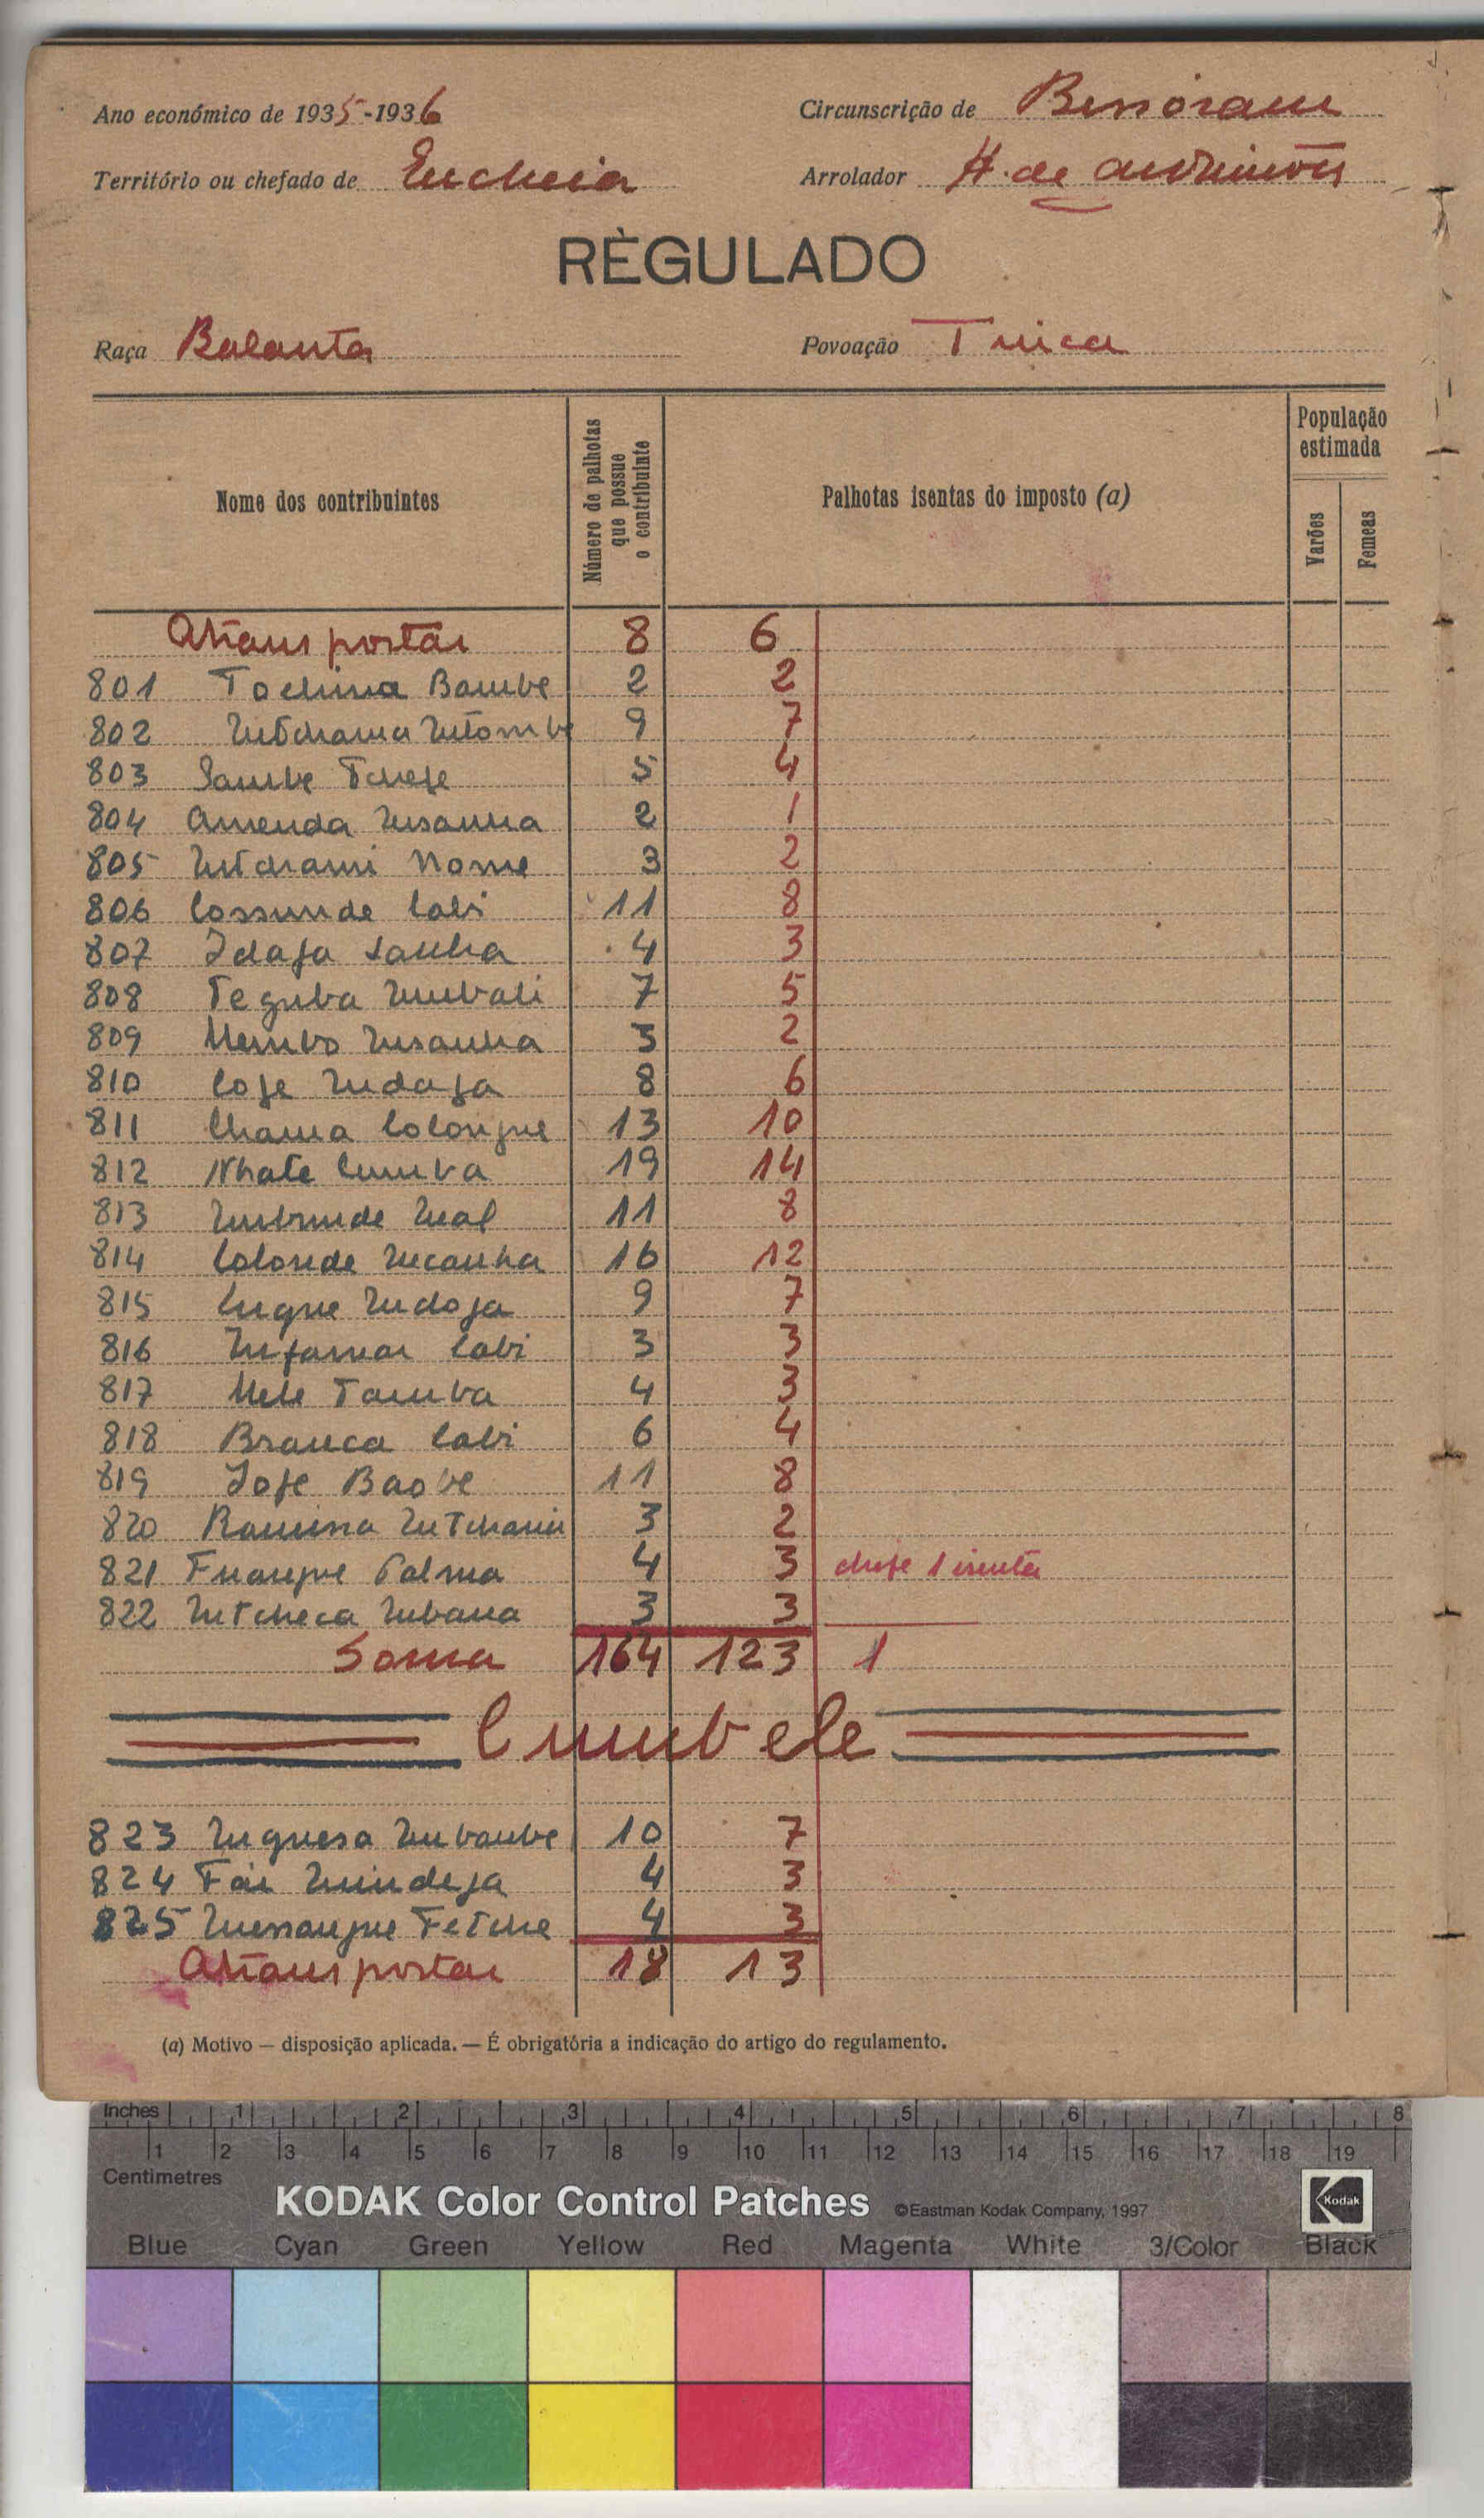 Ano económico de 1935-1936
Circunscrição de Bissoram
Território ou chefado de Encheia
Arrolador H. de
RÈGULADO
Raça Balanta
Povoação Tnica
Nome dos contribuintes
Número de palhotas que possue o contribuinte
Palhotas isentas do imposto (a)
População estimada
Varões
Femeas
Atransportar 8 6
801 Tochina Bambe 2 2
802 Intchama Intombe 9 7
803 Sambe Tchefe 5 4
804 Amenda Insanha 2 1
805 Intchami Nome 3 2
806 Cossunde Cabi 11 8
807 Idafa Sanha 4 3
808 Teguba Imbali 7 5
809 Mambo Insanha 3 2
810 Cofe Indafa 8 6
811 Chama Colongue 13 10
812 Nhate Cumba 19 14
813 Imbunde Inal 11 8
814 Colonde Incanha 16 12
815 Cuque Indafa 9 7
816 Infamar Cabi 3 3
817 Mele Tamba 4 3
818 Branca Cabi 6 4
819 Jofe Baobe 11 8
820 Ramina Intchami 3 2
821 Fuangue Palma 4 3 chefe 1 isenta
822 Intcheca Imbana 3 3
Soma 164 123 1
Cumbele
823 Inquesa Imbambe 10 7
824 Fai Inindefa 4 3
825 Insangue Fetche 4 3
Atransportar 18 13
(a) Motivo — disposição aplicada. — É obrigatória a indicação do artigo do regulamento.
Inches 1 2 3 4 5 6 7 8
1 2 3 4 5 6 7 8 9 10 11 12 13 14 15 16 17 18 19
Centimetres
KODAK Color Control Patches ©Eastman Kodak Company, 1997 Kodak
Blue Cyan Green Yellow Red Magenta White 3/Color Black